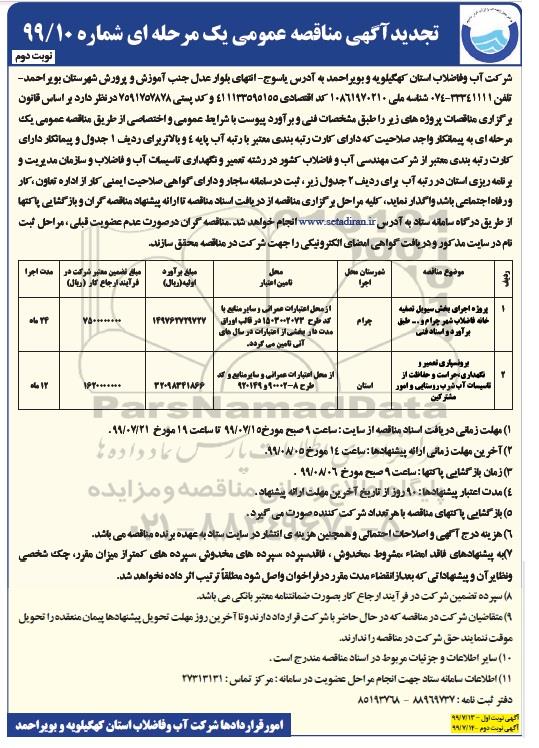 تجدید آگهی مناقصه عمومی یک مرحله ای شماره ۹۹/۱۰
نوبت دوم
شرکت آب وفاضلاب استان کهگیلویه و بویراحمد به آدرس یاسوج- انتهای بلوار عدل جنب آموزش و پرورش شهرستان بویراحمد-
تلفن ۳۳۳۴۱۱۱۱-۰۷۴ شناسه ملی ۱۰۸۶۱۹۷۰۲۱۰ کد اقتصادی ۴۱۱۱۳۳۵۹۵۱۵۵ و کد پستی ۷۵۹۱۷۵۷۸۷۸ درنظر دارد بر اساس قانون
برگزاری مناقصات پروژه های زیر را طبق مشخصات فنی و برآورد پیوست با شرایط عمومی و اختصاصی از طریق مناقصه عمومی یک
مرحله ای به پیمانکار واجد صلاحیت که دارای کارت رتبه بندی معتبر با رتبه آب پایه ۴ و بالاتر برای ردیف ۱ جدول و پیمانکار دارای
کارت رتبه بندی معتبر از شرکت مهندسی آب و فاضلاب کشور در رشته تعمیر و نگهداری تاسیسات آب و فاضلاب و سازمان مدیریت و
برنامه ریزی استان در رتبه آب برای ردیف ۲ جدول زیر ، ثبت در سامانه ساجار و دارای گواهی صلاحیت ایمنی کار از اداره تعاون ، کار
و رفاه اجتماعی باشد واگذار نماید، کلیه مراحل برگزاری مناقصه از دریافت اسناد مناقصه تا ارائه پیشنهاد مناقصه گران و بازگشایی پاکتها
از طریق درگاه سامانه ستاد به آدرس www.setadiran.ir انجام خواهد شد .مناقصه گران درصورت عدم عضویت قبلی ، مراحل ثبت
نام در سایت مذکور و دریافت گواهی امضای الکترونیکی را جهت شرکت در مناقصه محقق سازند.
ردیف موضوع مناقصه شهرستان محل اجرا محل تامین اعتبار مبلغ برآورد اولیه(ریال) مبلغ تضمین معتبر شرکت در فرآیند ارجاع کار (ریال) مدت اجرا
۱ پروژه اجرای بخش سیویل تصفیه خانه فاضلاب شهر چرام و ... طبق برآورد و اسناد فنی چرام از محل اعتبارات عمرانی و سایر منابع با کد طرح ۱۵۰۳۰۰۲۰۷۳ در قالب اوراق مدت دار بخشی از اعتبارات در سال های آتی تامین می گردد. ۱۴۹۷۶۲۷۲۹۷۲۷ ۷۵۰۰۰۰۰۰۰۰ ۲۴ ماه
۲ برونسپاری تعمیر و نگهداری،حراست و حفاظت از تاسیسات آب شرب روستایی و امور مشترکین استان از محل اعتبارات عمرانی و سایرمنابع و کد طرح ۹۰۰۰۲۰۸ و ۹۲۰۱۴۹ ۳۲۰۹۸۳۴۱۸۶۶ ۱۶۲۰۰۰۰۰۰۰ ۱۲ ماه
۱) مهلت زمانی دریافت اسناد مناقصه از سایت : ساعت ۹ صبح مورخ ۹۹/۰۷/۱۵ تا ساعت ۱۹ مورخ ۹۹/۰۷/۲۱ .
۲)آخرین مهلت زمانی ارائه پیشنهادها : ساعت ۱۴ مورخ ۹۹/۰۸/۰۵.
۳) زمان بازگشایی پاکتها : ساعت ۹ صبح مورخ ۹۹/۰۸/۰۶ .
۴) مدت اعتبار پیشنهادها : ۹۰ روز از تاریخ آخرین مهلت ارائه پیشنهاد .
۵) بازگشایی پاکتهای مناقصه با هر تعداد شرکت کننده صورت می گیرد .
۶) هزینه درج آگهی و اصلاحات احتمالی و همچنین هزینه ی انتشار در سایت ستاد به عهده برنده مناقصه می باشد.
۷)به پیشنهادهای فاقد امضاء ،مشروط ،مخدوش ، فاقدسپرده سپرده های مخدوش ،سپرده های کمتر از میزان مقرر، چک شخصی
ونظایر آن و پیشنهاداتی که بعد از انقضاء مدت مقرر در فراخوان واصل شود مطلقاً ترتیب اثر داده نخواهد شد.
۸) سپرده تضمین شرکت در فرآیند ارجاع کار بصورت ضمانتنامه معتبر بانکی می باشد.
۹) متقاضیان شرکت در مناقصه که در حال حاضر با شرکت قرارداد دارند و تا آخرین روز مهلت تحویل پیشنهادها پیمان منعقده را تحویل
موقت ننمایند حق شرکت در مناقصه را ندارند.
۱۰) سایر اطلاعات و جزئیات مربوط در اسناد مناقصه مندرج است .
۱۱) اطلاعات سامانه ستاد جهت انجام مراحل عضویت در سامانه : مرکز تماس : ۲۷۳۱۳۱۳۱
دفتر ثبت نامه : ۸۸۹۶۹۷۳۷ - ۸۵۱۹۳۷۶۸
آگهی نوبت اول - ۹۹/۷/۱۳
آگهی نوبت دوم - ۹۹/۷/۱۴
امور قراردادها شرکت آب وفاضلاب استان کهگیلویه و بویراحمد
ParsNamadData
پایگاه اطلاع رسانی مناقصه و مزایده
۰۲۱-۸۸۳۴۹۶۷۰-۵